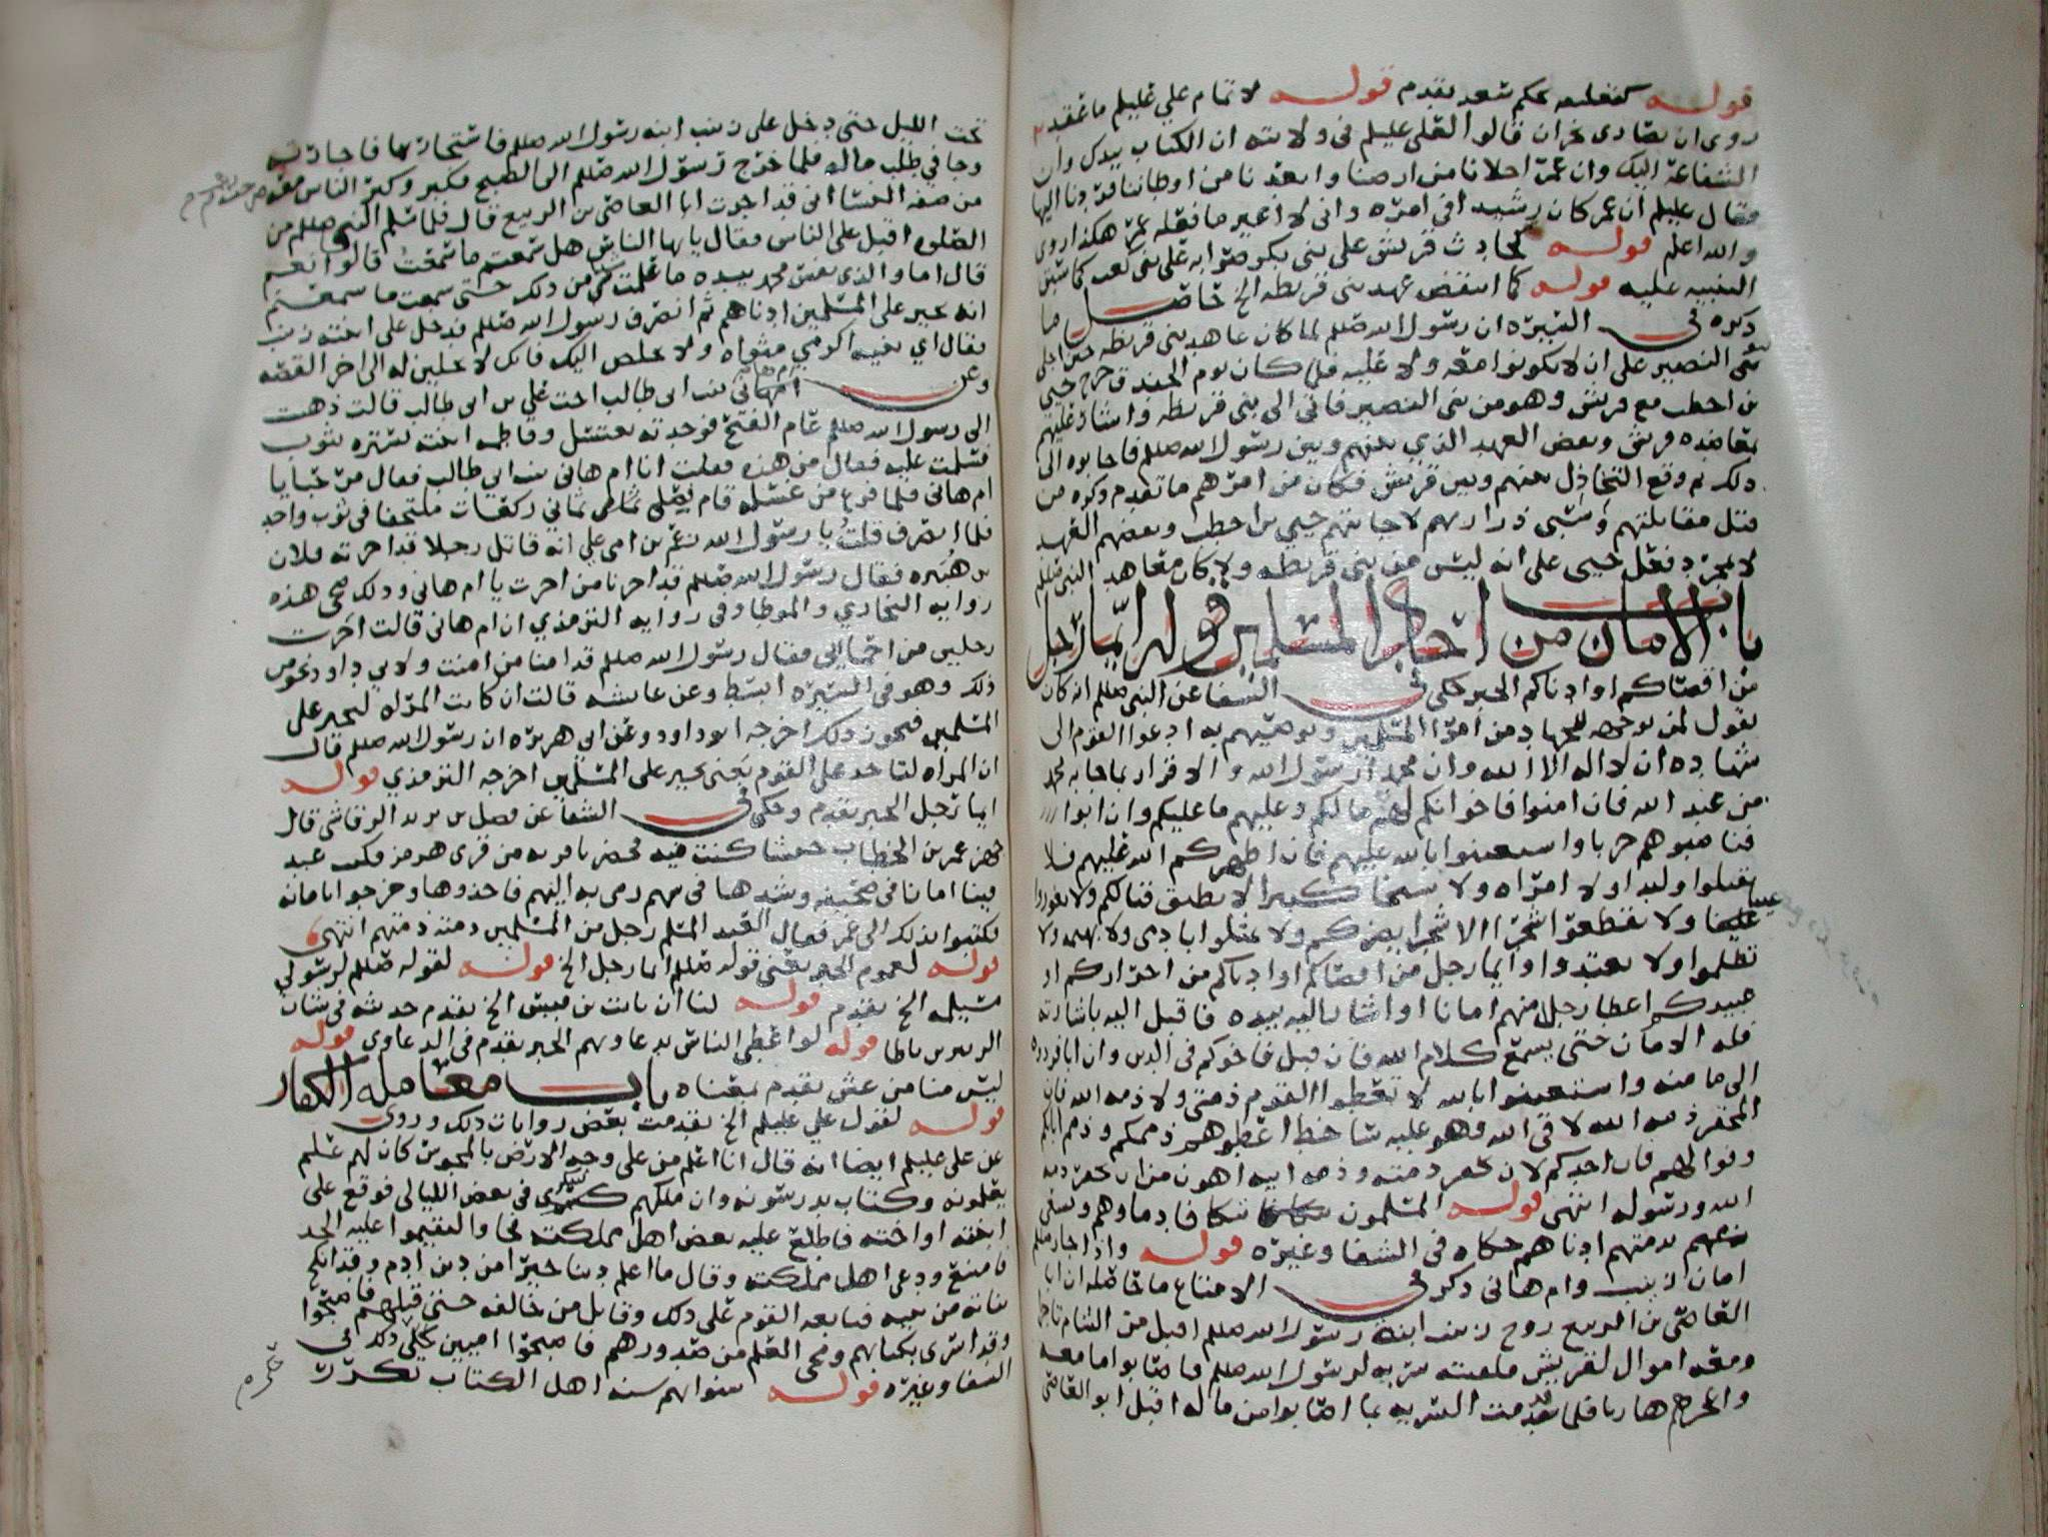 قوله كتغليبه بحكم سعد تقدم قوله لا تمام علي عليلم ما عقده
روى ان نصارى نجران قالوا لعلي عليلم في ولايته ان الكتاب بيدك وان
الشفاعة اليك وان عمر اجلانا من ارضنا وابعدنا من اوطاننا فردنا اليها
فقال عليلم ان عمر كان رشيدا في امره واني لا اغير ما فعله عمر هكذا روى
والله اعلم قوله كحادث قريش على بني بكر على بني كعب كما سبق
التنبيه عليه قوله كما انتقض عهد بني قريظه الخ حاصل ما
ذكره في السيره ان رسول الله صللم لما كان عاهد بني قريظه حين اجلى
بني النضير على ان لا يكونوا معه ولا عليه فلما كان يوم الخندق خرج حيي
بن اخطب مع قريش وهو من بني النضير فاتى الى بني قريظه واشار عليهم
بمعاضده قريش ونقض العهد الذي بينهم وبين رسول الله صللم فاجابوه الى
ذلك ثم وقع التخاذل بينهم وبين قريش فكان من امرهم ما تقدم ذكره من
قتل مقاتلتهم وسبي ذراريهم لاجابتهم حيي بن اخطب ونقضهم العهد
لا لمجرد فعل حيي على انه ليس من بني قريظه ولا كان معاهد النبي صللم
باب الامان من احاد المسلمين قوله ايما رجل
من اقصاكم او ادناكم الخبر حكى في الشفا عن النبي صللم انه كان
يقول لمن يوجهه للجهاد من امرا المسلمين ويوصيهم به ادعوا القوم الى
شهاده ان لا اله الا الله وان محمدا رسول الله والاقرار بما جا به محمد
من عند الله فان امنوا فاخوانكم لهم ما لكم وعليهم ما عليكم وان ابوا
فناصبوهم حربا واستعينوا بالله عليهم فان اظهركم الله عليهم فلا
تقتلوا وليدا ولا امراه ولا شيخا كبيرا لا يطيق قتالكم ولا تغوروا
عينا ولا تقطعوا شجرا الا شجرا يضركم ولا تمثلوا بادمي ولا بهيمه ولا
تظلموا ولا تعتدوا وايما رجل من اقصاكم او ادناكم من احراركم او
عبيدكم اعطا رجل منهم امانا او اشار اليه بيده فاقبل اليه باشارته
فله الامان حتى يسمع كلام الله فان قبل فاخوكم في الدين وان ابا فردوه
الى مامنه واستعينوا بالله لا تعطوا القوم ذمتي ولا ذمه الله فان
المخفر ذمه الله لاقي الله وهو عليه ساخط اعطوهم ذممكم وذمم ابايكم
وفوا لهم فان احدكم لان يخفر ذمته وذمه ابيه اهون من ان يخفر ذمه
الله ورسوله انتهى قوله المسلمون تتكافا دماوهم ويسعى
بذمتهم ادناهم حكاه في الشفا وغيره قوله واذا جار صللم
امان زينب وام هاني ذكر في الامتاع ما حاصله ان ابا
العاص بن الربيع زوج زينب ابنة رسول الله صللم اقبل من الشام تاجرا
ومعه اموال لقريش فلقيته سريه لرسول الله صللم فاصابوا ما معه
واعجزهم هاربا فلما قدمت السريه بما اصابوا من ماله اقبل ابو العاص
تحت الليل حتى دخل على زينب ابنه رسول الله صللم فاستجار بها فاجارته
وجا في طلب ماله فلما خرج رسول الله صللم الى الصبح فكبر وكبر الناس معه
من صفه النسا اني قد اجرت ابا العاص بن الربيع قال فلما سلم النبي صللم من
الصلوه اقبل على الناس فقال يايها الناس هل سمعتم ما سمعت قالوا نعم
قال اما والذي نفس محمد بيده ما علمت شي من ذلك حتى سمعت ما سمعتم
انه يجير على المسلمين ادناهم ثم انصرف رسول الله صللم فدخل على ابنته زينب
فقال اي بنيه اكرمي مثواه ولا يخلص اليك فانك لا تحلين له الى اخر القصه
وعن ام هاني بنت ابي طالب اخت علي بن ابي طالب قالت ذهبت
الى رسول الله صللم عام الفتح فوجدته يغتسل وفاطمه ابنته تستره بثوب
فسلمت عليه فقال من هذه فقلت انا ام هاني بنت ابي طالب فقال مرحبا يا
ام هاني فلما فرغ من غسله قام فصلى ثماني ركعات ملتحفا في ثوب واحد
فلما انصرف قلت يا رسول الله زعم بن امي علي انه قاتل رجلا قد اجرته فلان
بن هبيره فقال رسول الله صللم قد اجرنا من اجرت يا ام هاني وذلك ضحى هذه
روايه البخاري والموطا وفي روايه الترمذي ان ام هاني قالت اجرت
رجلين من احمائي فقال رسول الله صللم قد امنا من امنت ولابي داود نحو من
ذلك وهو في السيره ابسط وعن عايشه قالت ان كانت المراه لتجير على
المسلمين فيجوز ذلك اخرجه ابو داود وعن ابي هريره ان رسول الله صللم قال
ان المراه لتاخذ على القوم يعني تجير على المسلمين اخرجه الترمذي قوله
ايما رجل الخبر تقدم وحكى في الشفا عن فضل بن يزيد الرقاشي قال
جهز عمر بن الخطاب جيشا كنت فيه فحضرنا قريه من قرى هرمز فكتب عبد
مينا امانا في صحيفه وشدها في سهم رمى به اليهم فاخذوها وخرجوا بامانه
فكتبوا بذلك الى عمر فقال العبد المسلم رجل من المسلمين ذمته ذمتهم انتهى
قوله لعموم الخبر يعني قوله صللم ايما رجل الخ قوله لقوله صللم لرسولي
مسيلمه الخ تقدم قوله لنا ان ثابت بن قيس الخ تقدم حديثه في شان
الزبير بن باطا قوله لو اعطي الناس بدعاويهم الخبر تقدم في الدعاوى قوله
ليس منا من غش تقدم بمعناه باب معامله الكفار
قوله لقول علي عليلم الخ تقدمت بعض روايات ذلك وروي
عن علي عليلم ايضا انه قال انا اعلم من على وجه الارض بالمجوس كان لهم علم
يعلمونه وكتاب يدرسونه وان ملكهم سكر في بعض الليالي فوقع على
ابنته او اخته فاطلع عليه بعض اهل مملكته فجاوا ليقيموا عليه الحد
فامتنع ودعى اهل مملكته وقال ما اعلم دينا خيرا من دين ادم وقد انكح
بناته من بنيه فتابعه القوم على ذلك وقاتل من خالفه حتى قتلهم فاصبحوا
وقد اسرى بكتابهم ومحى العلم من صدورهم فاصبحوا اميين حكى ذلك في
الشفا وغيره قوله سنوا بهم سنه اهل الكتاب تكررت